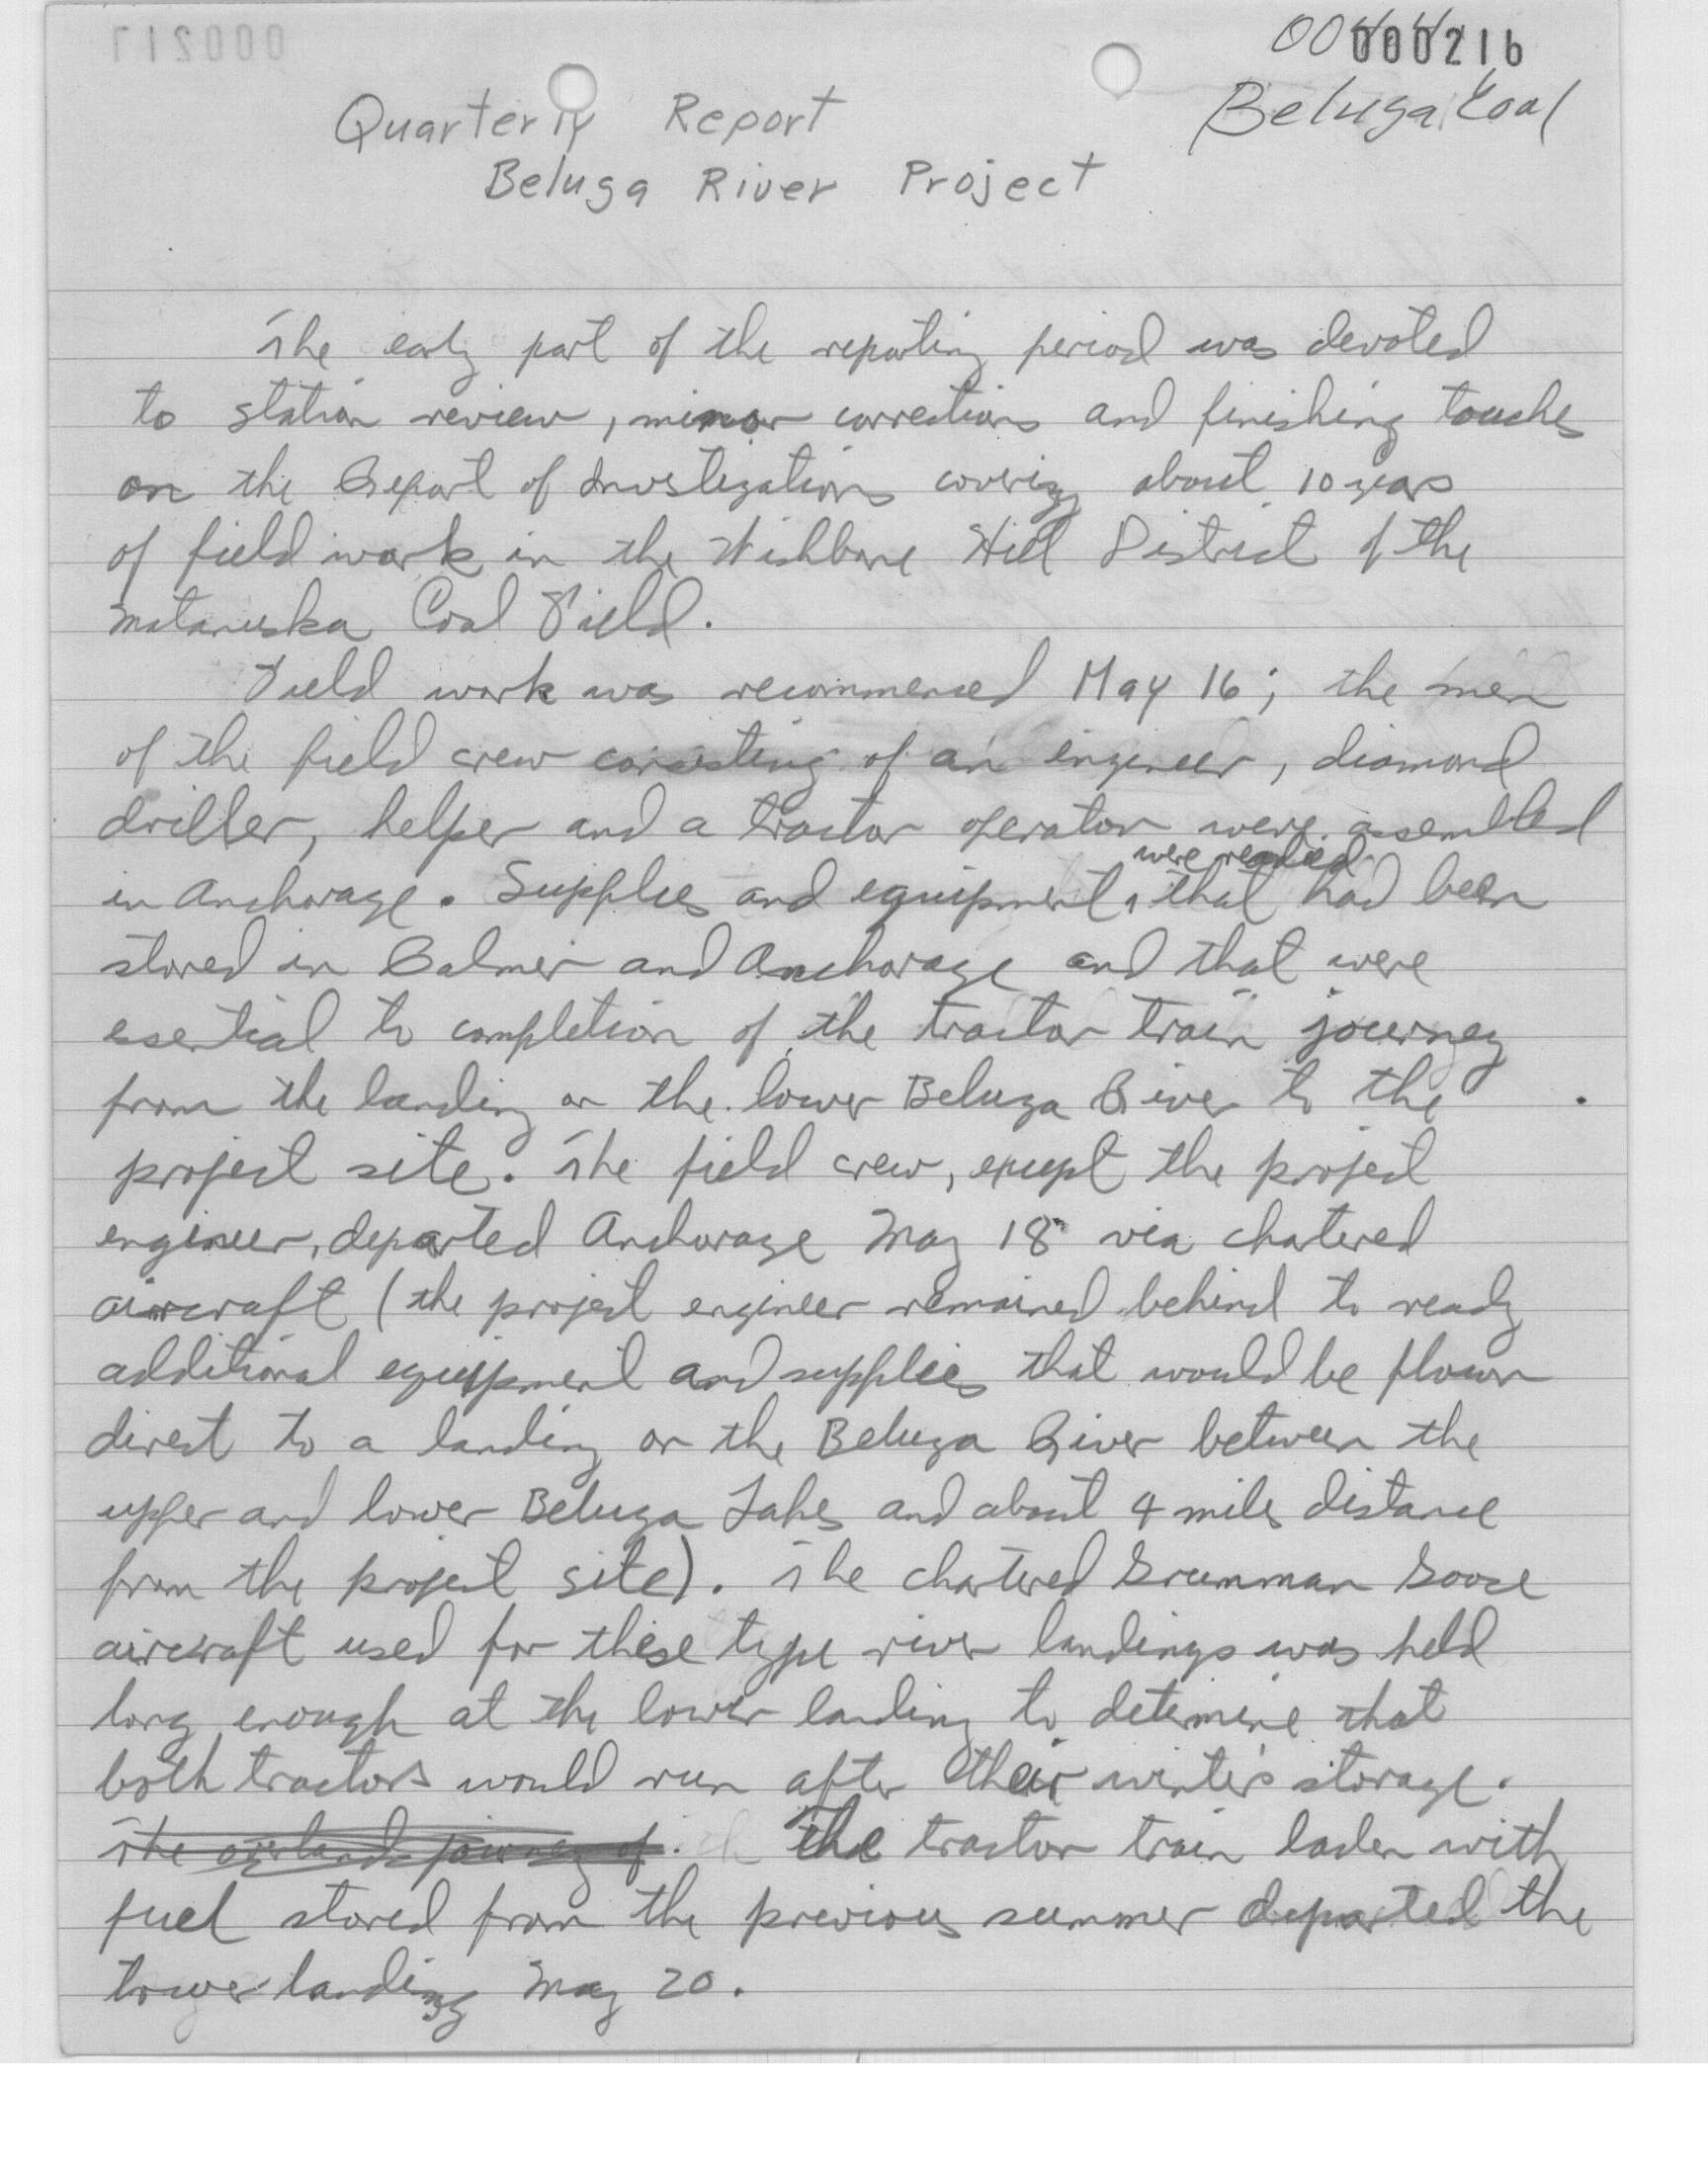 000216
Beluga Coal
Quarterly Report
Beluga River Project
The early part of the reporting period was devoted
to station review, minor corrections and finishing touches
on the Report of Investigations covering about 10 years
of field work in the Wishbone Hill District of the
Matanuska Coal Field.
Field work was recommenced May 16; the men
of the field crew consisting of an engineer, diamond
driller, helper and a tractor operator were assembled
were readied
in Anchorage. Supplies and equipment, that had been
stored in Palmer and Anchorage and that were
essential to completion of the tractor train journey
from the landing on the lower Beluga River to the
project site. The field crew, except the project
engineer, departed Anchorage May 18 via chartered
aircraft (the project engineer remained behind to ready
additional equipment and supplies that would be flown
direct to a landing on the Beluga River between the
upper and lower Beluga Lakes and about 4 miles distance
from the project site). The chartered Grumman Goose
aircraft used for these type river landings was held
long enough at the lower landing to determine that
both tractors would run after their winter's storage.
The overland journey of The tractor train laden with
fuel stored from the previous summer departed the
lower landing May 20.